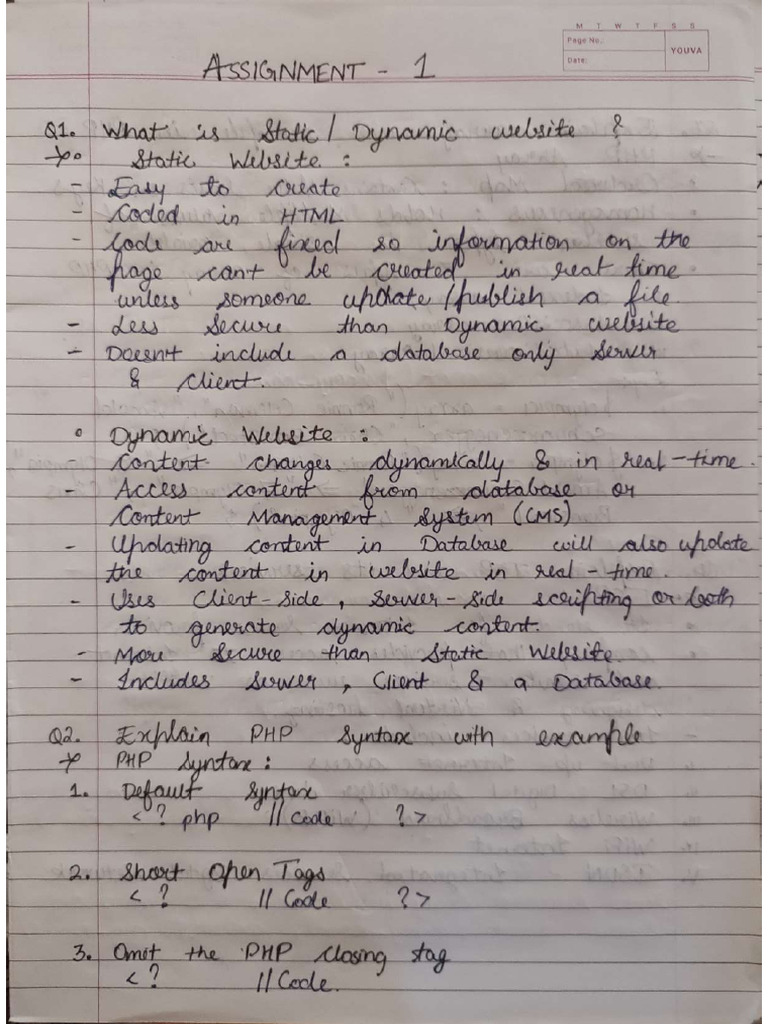 M T W T F S S
Page No.:
YOUVA
Date:
ASSIGNMENT - 1
Q1. What is Static / Dynamic website ?
→ • Static Website :
- Easy to create
- Coded in HTML
- Code are fixed so information on the
page cant be created in real time
unless someone update/publish a file.
- Less Secure than Dynamic website
- Doesnt include a database only server
& client.
• Dynamic Website :
- Content changes dynamically & in real-time.
- Access content from database or
Content Management System (CMS)
- Updating content in Database will also update
the content in website in real-time.
- Uses Client-Side, Server-Side scripting or both
to generate dynamic content.
- More Secure than Static Website.
- Includes Server, Client & a Database.
Q2. Explain PHP Syntax with example
→ PHP Syntax :
1. Default Syntax
< ? php // Code ? >
2. Short Open Tags
< ? // Code ? >
3. Omit the PHP closing tag
< ? // Code.